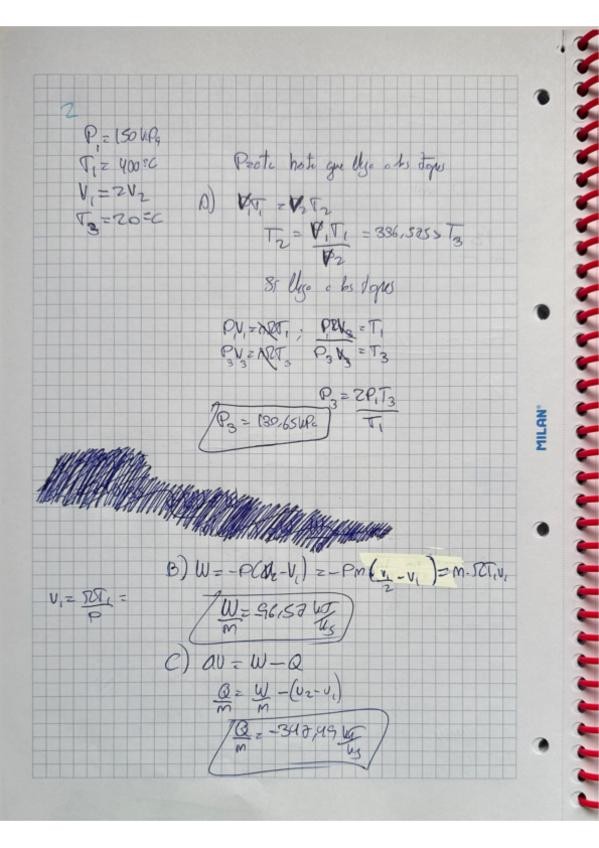 2
P₁ = 150 kPa
T₁ = 400 °C
V₁ = 2V₂
T₃ = 20 °C
P=cte hasta que llega a los topes
A) V₁T₁ = V₂T₂
T₂ = V₁T₁ / V₂ = 336,525 > T₃
Si llega a los topes
P₁V₁ = nRT₁ ; P₁2V₃ = T₁
P₃V₃ = nRT₃ P₃V₃ = T₃
P₃ = 2P₁T₃ / T₁
P₃ = 130,65 kPa
B) W = -P(V₂ - V₁) = -Pm(v₁/2 - v₁) = m·RT₁v₁
v₁ = RT₁ / P =
W/m = 96,57 kJ/kg
C) ΔU = W - Q
Q/m = W/m - (u₂ - u₁)
Q/m = -347,49 kJ/kg
MILAN